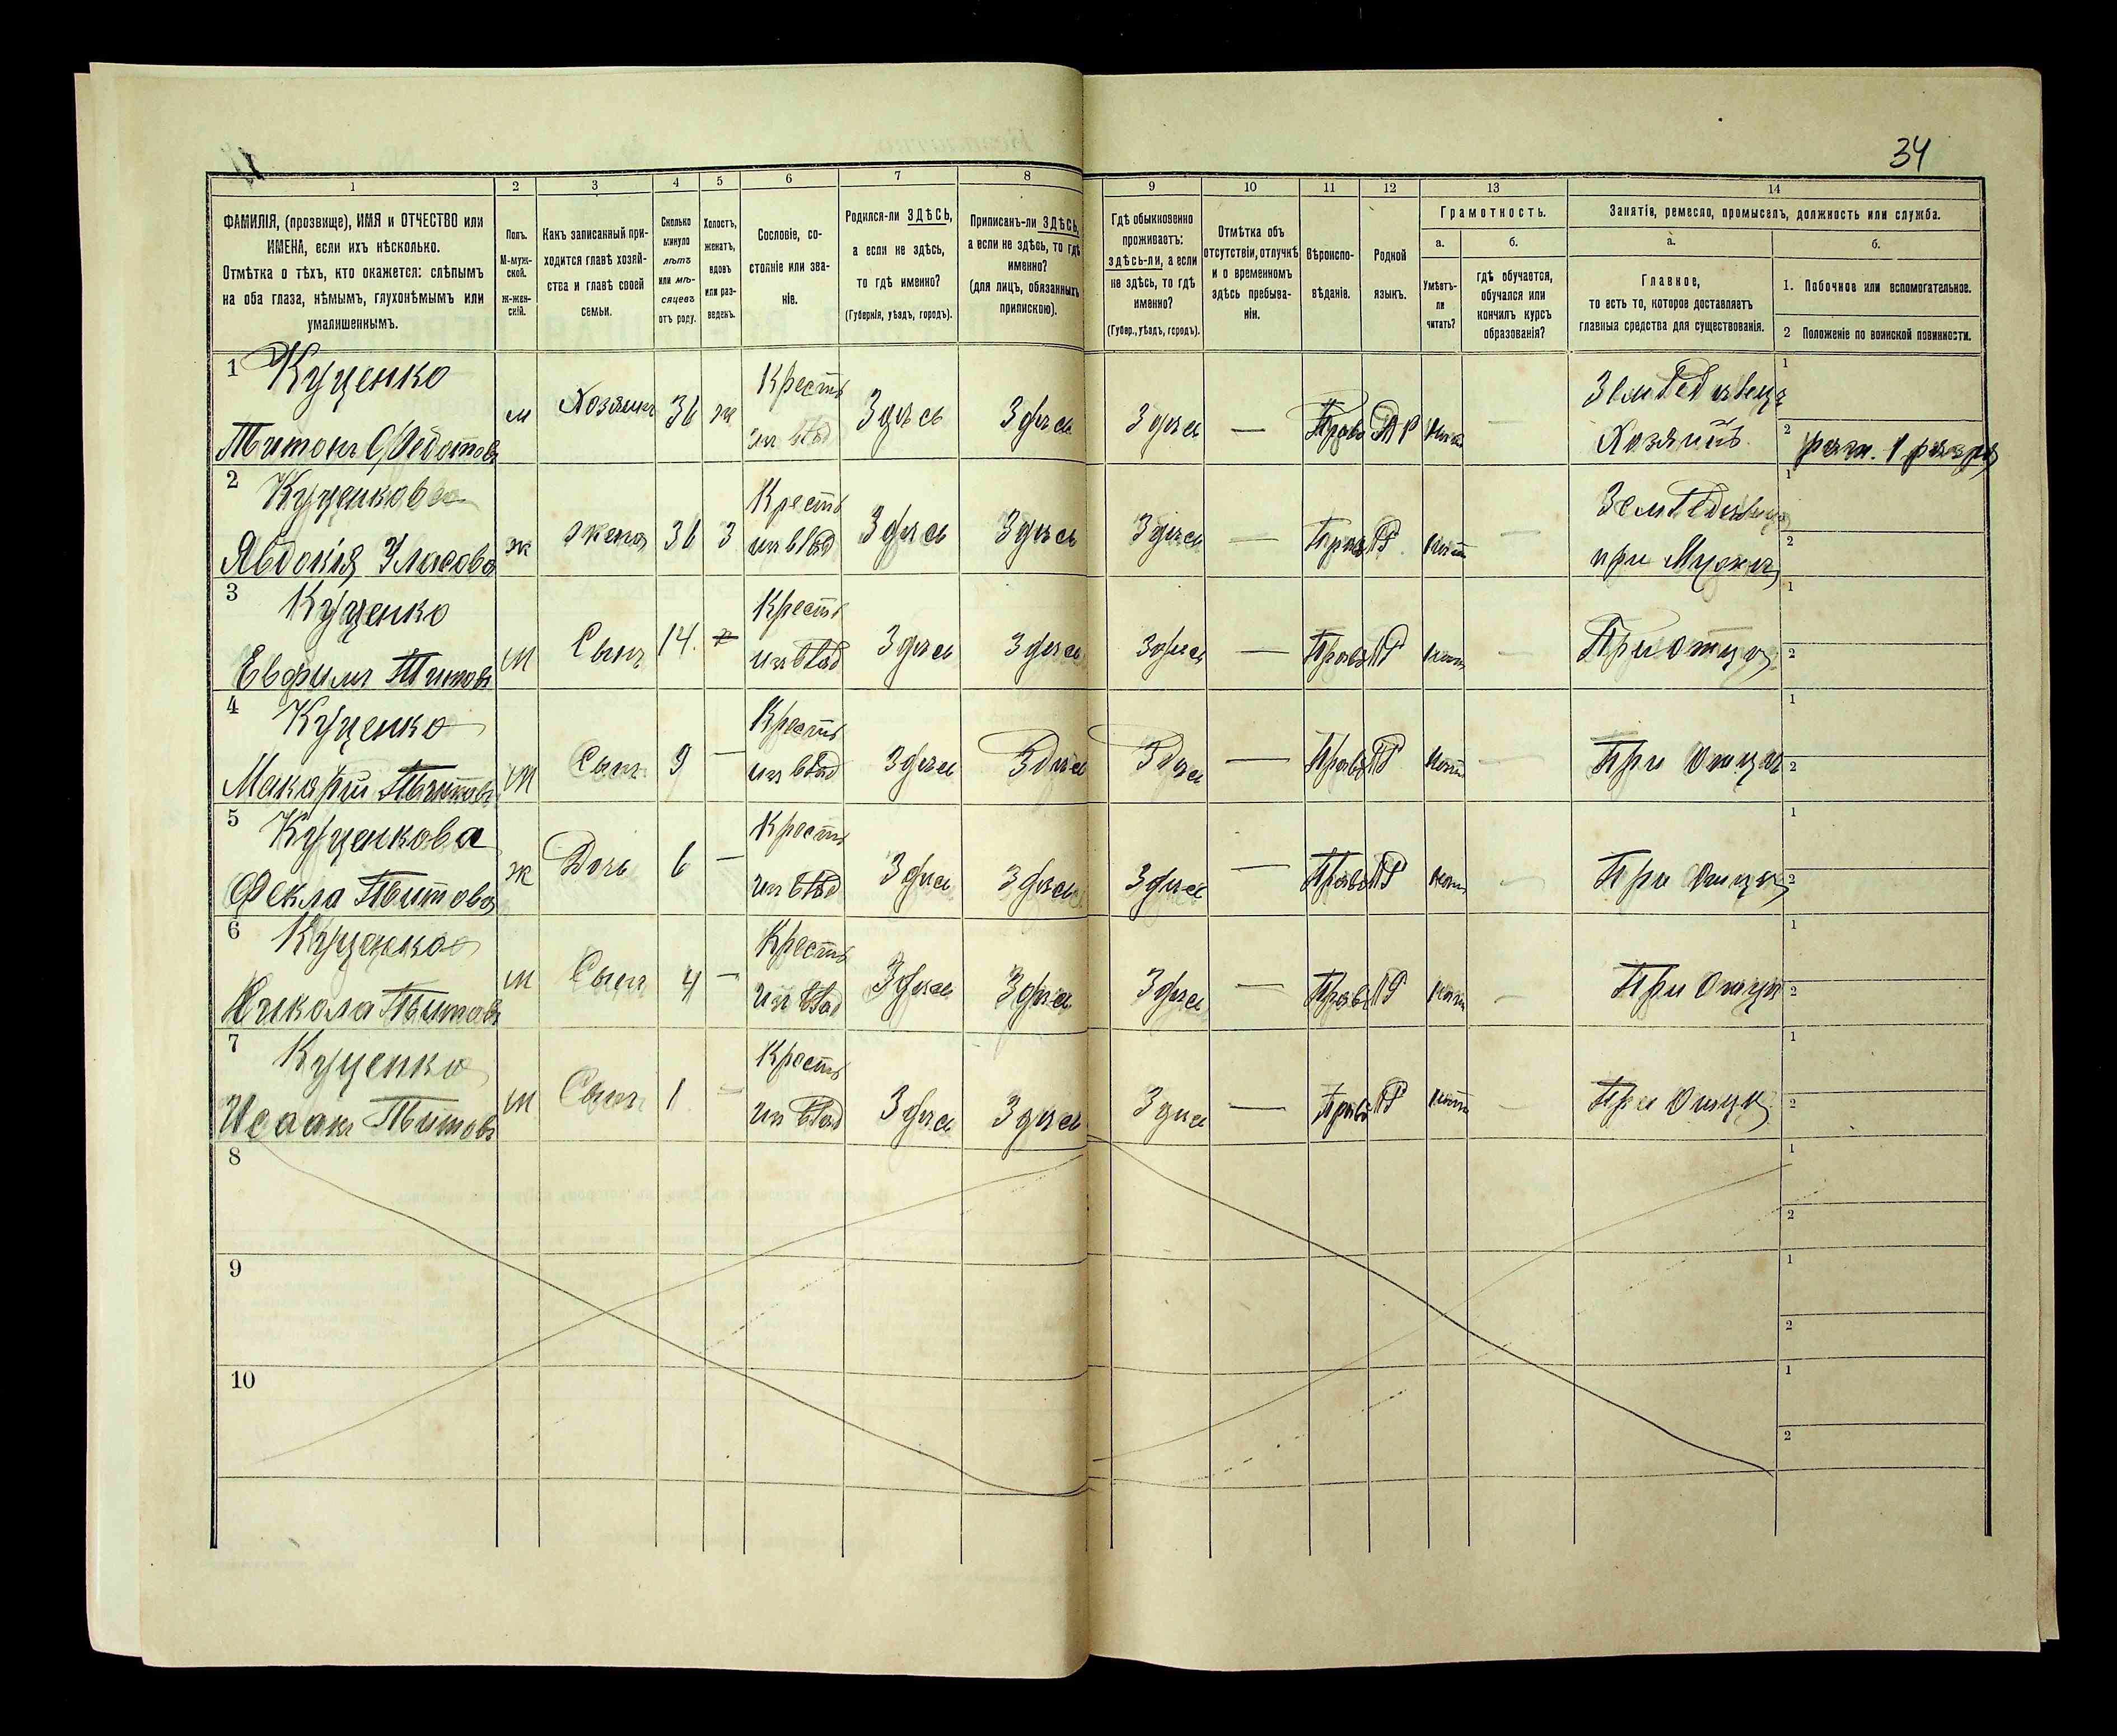 34
1 2 3 4 5 6 7 8 9 10 11 12 13 14
ФАМИЛІЯ, (прозвище), ИМЯ и ОТЧЕСТВО или
ИМЕНА, если ихъ нѣсколько.
Отмѣтка о тѣхъ, кто окажется: слѣпымъ
на оба глаза, нѣмымъ, глухонѣмымъ или
умалишеннымъ.
Полъ.
М-муж-
ской.
ж-жен-
скій.
Какъ записанный при-
ходится главѣ хозяй-
ства и главѣ своей
семьи.
Сколько
минуло
лѣтъ
или мѣ-
сяцевъ
отъ роду.
Холостъ,
женатъ,
вдовъ
или раз-
веденъ.
Сословіе, со-
стояніе или зва-
ніе.
Родился-ли ЗДѢСЬ,
а если не здѣсь,
то гдѣ именно?
(Губернія, уѣздъ, городъ).
Приписанъ-ли ЗДѢСЬ,
а если не здѣсь, то гдѣ
именно?
(для лицъ, обязанныхъ
припискою).
Гдѣ обыкновенно
проживаетъ:
здѣсь-ли, а если
не здѣсь, то гдѣ
именно?
(Губер., уѣздъ, городъ).
Отмѣтка объ
отсутствіи, отлучкѣ
и о временномъ
здѣсь пребыва-
ніи.
Вѣроиспо-
вѣданіе.
Родной
языкъ.
Грамотность.
а.
Умѣетъ-
ли
читать?
б.
гдѣ обучается,
обучался или
кончилъ курсъ
образованія?
Занятія, ремесло, промыселъ, должность или служба.
а.
Главное,
то есть то, которое доставляетъ
главныя средства для существованія.
б.
1. Побочное или вспомогательное.
2 Положеніе по воинской повинности.
1 Куценко Кресть 1
м Хозяинъ 36 ж Здѣсь Здѣсь Здѣсь — Прав нѣтъ Хозяинъ 2
Титъ Федотовъ
2 Куценкова Кресть 1
ж жена 36 З Здѣсь Здѣсь Здѣсь — Прав нѣтъ при Мужѣ 2
Явдокія Уласова
3 Куценко Кресть 1
м Сынъ 14 Здѣсь Здѣсь Здѣсь — Прав нѣтъ При отцѣ 2
Евфимъ Титовъ
4 Куценко Кресть 1
м Сынъ 9 — Здѣсь Здѣсь Здѣсь — Прав нѣтъ При Отцѣ 2
Макарій Титовъ
5 Куценкова Кресть 1
ж Дочь 6 — Здѣсь Здѣсь Здѣсь — Прав нѣтъ При Отцѣ 2
Фекла Титова
6 Куценко Кресть 1
м Сынъ 4 — Здѣсь Здѣсь Здѣсь — Прав нѣтъ При Отцѣ 2
Никола Титовъ
7 Куценко Кресть 1
м Сынъ 1 — Здѣсь Здѣсь Здѣсь — Прав нѣтъ При Отцѣ 2
Исаакъ Титовъ
8 1
2
9 1
2
10 1
2